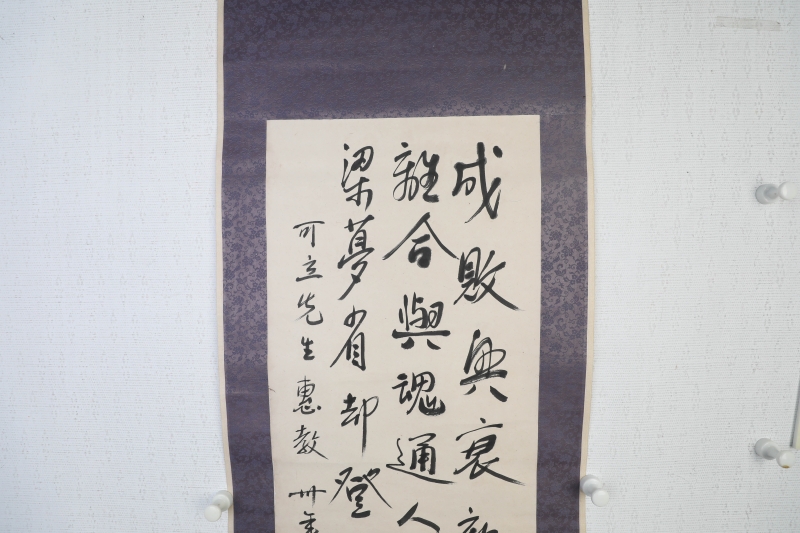 成敗興衰
離合與魂通人
梁夢省却登
可立先生惠教 卅年